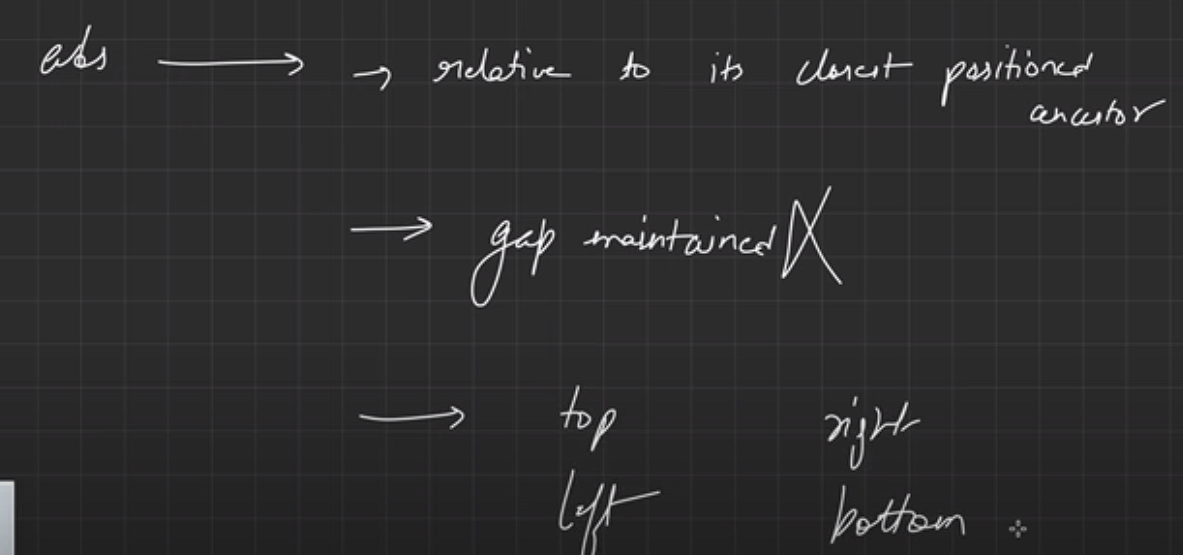 abs → → relative to its closest positioned
ancestor
→ gap maintained X
→ top right
left bottom